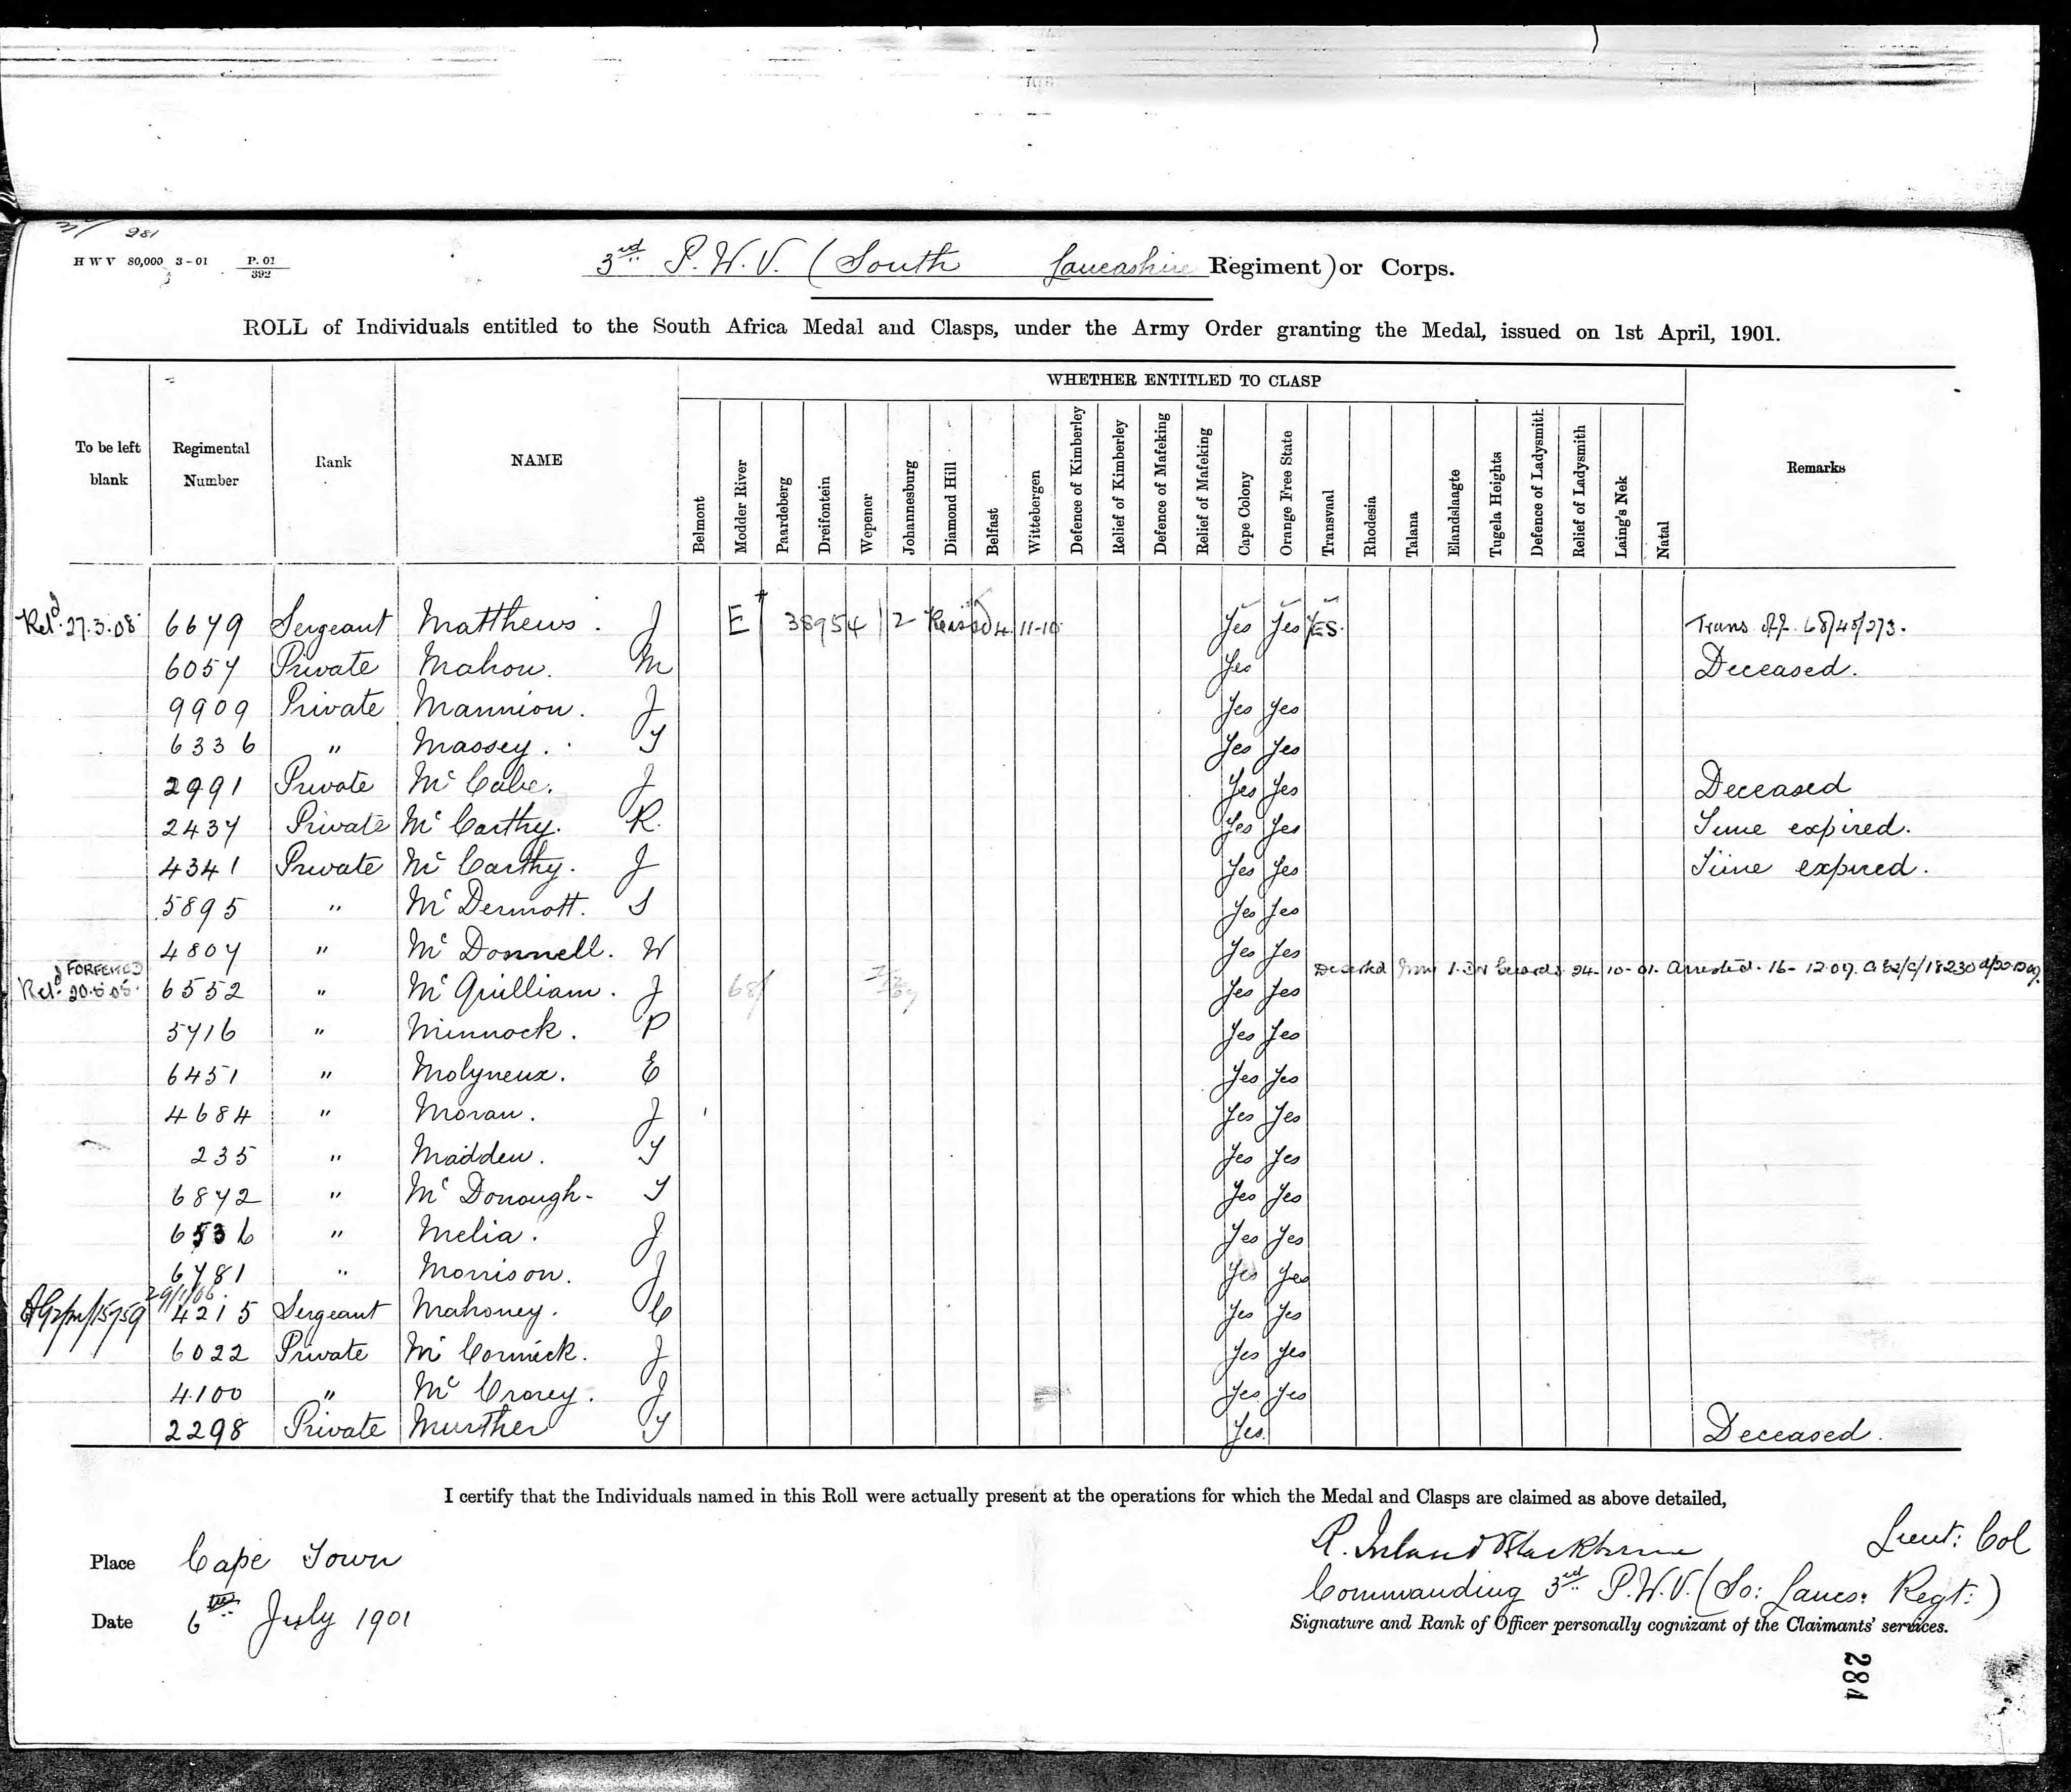 281
H W V 80,000 3-01 P. 01/392
3rd P.W.V. (South Lancashire Regiment) or Corps.
ROLL of Individuals entitled to the South Africa Medal and Clasps, under the Army Order granting the Medal, issued on 1st April, 1901.
To be left blank Regimental Number Rank NAME WHETHER ENTITLED TO CLASP Remarks
Belmont Modder River Paardeberg Dreifontein Wepener Johannesburg Diamond Hill Belfast Wittebergen Defence of Kimberley Relief of Kimberley Defence of Mafeking Relief of Mafeking Cape Colony Orange Free State Transvaal Rhodesia Talana Elandslaagte Tugela Heights Defence of Ladysmith Relief of Ladysmith Laing's Nek Natal
Retd. 27.3.08 6679 Sergeant Matthews. J E 38954 2 11-10 Yes Yes YES. Trans
6057 Private Mahon. M Yes Deceased.
9909 Private Mannion. J Yes Yes
6336 " Massey. T Yes Yes
2991 Private Mc Cabe. J Yes Yes Deceased
2437 Private Mc Carthy. R. Yes Yes Time expired.
4341 Private Mc Carthy. J Yes Yes Time expired.
5895 " Mc Dermott. S Yes Yes
4807 " Mc Donnell. W Yes Yes
FORFEITED Deserted from Guards 24-10-01. Arrested. 16-12-07.
Retd. 6552 " Mc Quilliam. J 68/ Yes Yes
5716 " Minnock. P Yes Yes
6451 " Molyneux. E Yes Yes
4684 " Moran. J Yes Yes
235 " Madden. T Yes Yes
6872 " Mc Donough- T Yes Yes
6536 " Melia. J Yes Yes
6781 " Morrison. J Yes Yes
29/1/06.
4215 Sergeant Mahoney. C Yes Yes
6022 Private Mc Cormick. J Yes Yes
4100 " Mc Crorey. J Yes Yes
2298 Private Murther T Yes. Deceased.
I certify that the Individuals named in this Roll were actually present at the operations for which the Medal and Clasps are claimed as above detailed,
R. Ireland Blackburne Lieut: Col
Place Cape Town
Commanding 3rd P.W.V. (So: Lancs: Regt:)
Date 6th July 1901
Signature and Rank of Officer personally cognizant of the Claimants' services.
281